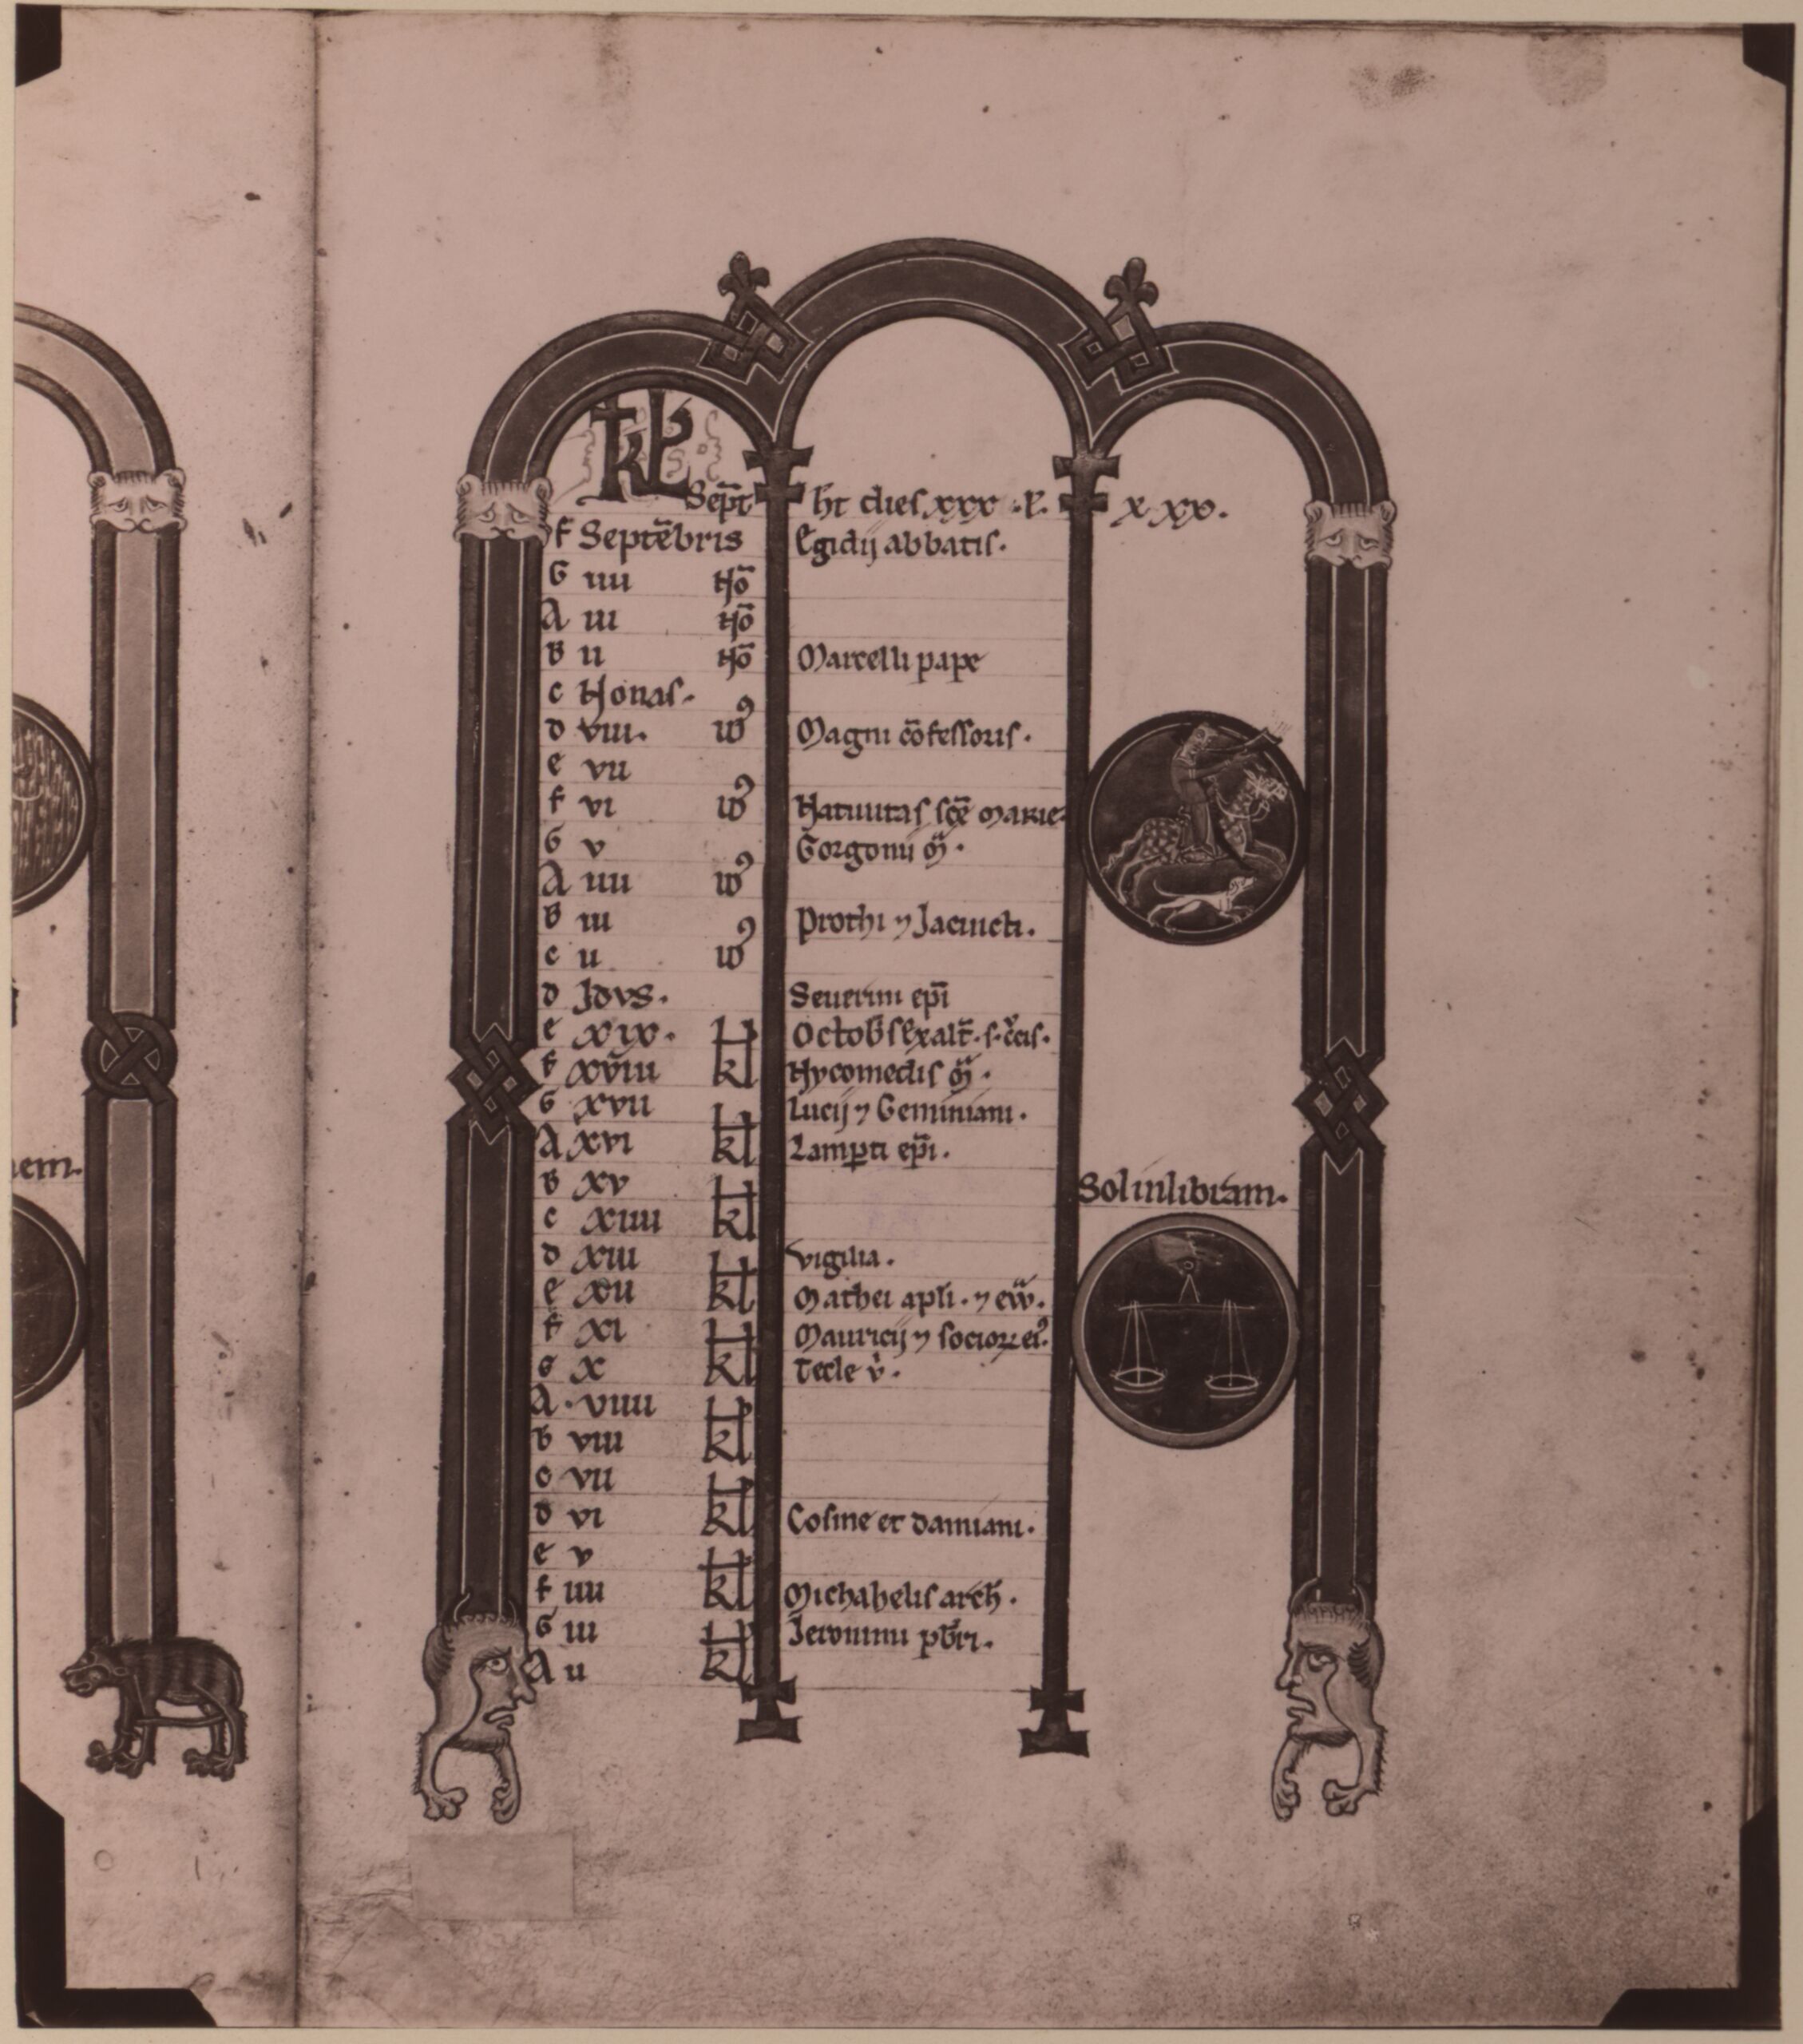 em.
KL
Sept̄ ht̄ dies xxx .l. xxx.
F Septēbris Egidij abbatis.
G iiii Nō
A iii Nō
B ii Nō Marcelli pape
c Nonas.
d viii. id9 Magni cōfessoris.
e vii
f vi id9 Natiuitas sc̄e marie
G v Gorgonii m̄.
A iiii id9
B iii Prothi ⁊ Jacincti.
c ii id9
d Jdvs. Seuerini ep̄i
e xix. kl Octob̄ſ Exalt̄. s. c̄cis.
f xviii kl Nycomedis m̄.
G xvii Lucij ⁊ Geminiani.
A xvi kl Lamp̄ti ep̄i.
B xv
c xiiii kl
d xiii vigilia.
e xii kl Mathei apl̄i. ⁊ ew̄.
f xi Mauricij ⁊ socioꝝ ei9.
G x kl Tecle v̄.
A. viiii
B viii kl
c vii
d vi kl Cosme et damiani.
e v
f iiii kl Michahelis arch̄.
G iii Jeronimi pb̄ri.
A ii kl
Sol in libram.